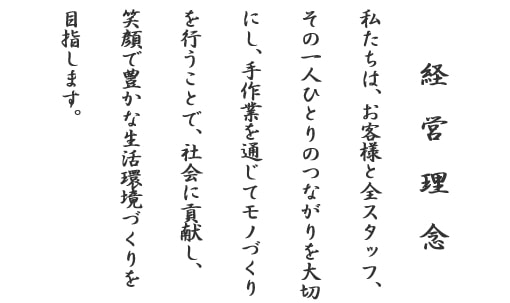 経営理念
私たちは、お客様と全スタッフ、
その一人ひとりのつながりを大切
にし、手作業を通じてモノづくり
を行うことで、社会に貢献し、
笑顔で豊かな生活環境づくりを
目指します。